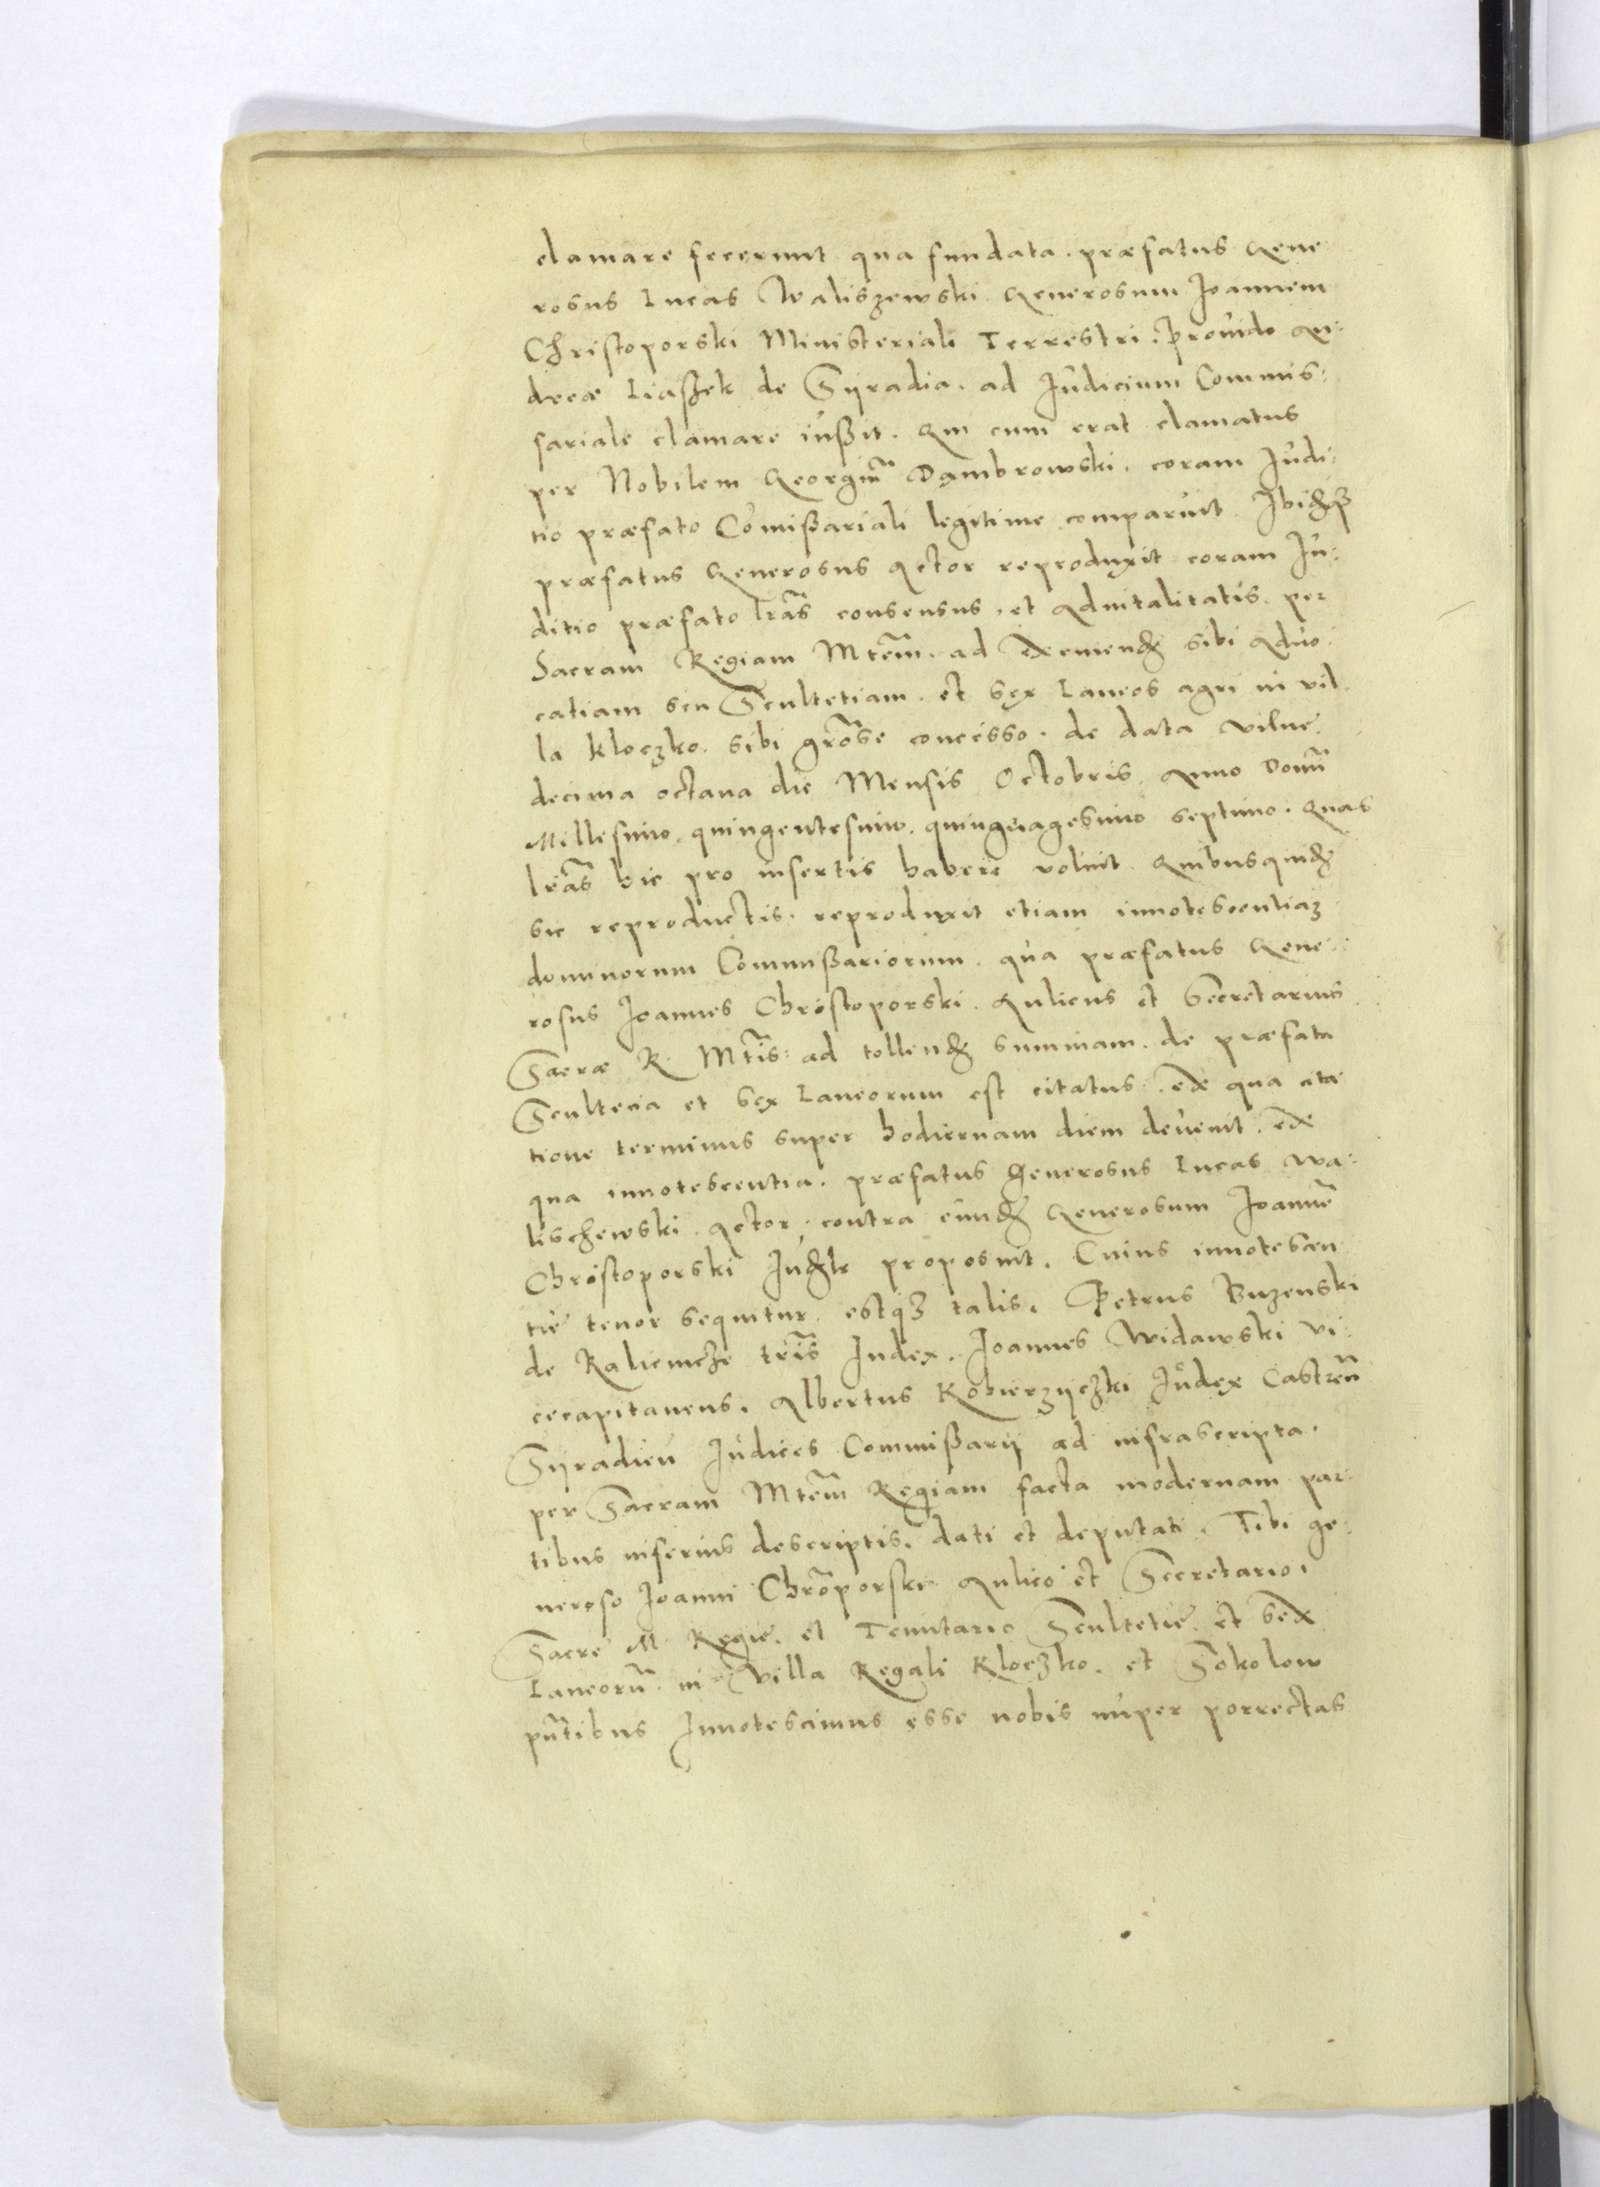 clamare fecerunt qua fundata. præfatus Gene
rosus Lucas Waliszewski Generosum Joannem
Christoporski Ministeriali Terrestri. provido An:
dreæ Liaszek de Syradia. ad Judicium Commis:
sariale clamare iussit. Qui cum erat clamatus
per Nobilem Georgiũ Dambrowski. coram Judi:
tio præfato Com̃issariali legitime comparuit. Ibidemq3
præfatus Generosus Actor reproduxit coram Ju:
ditio præfato lr̃as consensus. et Advitalitatis. per
Sacram Regiam Mtem̃. ad exemendẜ sibi Advo
catiam seu Scultetiam. et sex Laneos agri in vil
la Kloczko. sibi gr̃ose concesso. de data vilne
decima octava die Mensis Octobris. Anno Domĩ
Millesimo. quingentesimo. quinquagesimo septimo. Quas
lr̃as hic pro insertis habere voluit Quibusquidẜ
sic reproductis. reproduxit etiam innotescentiaz
dominorum Commissariorum. qua præfatus Gene
rosus Joannes Christoporski. Aulicus et Secretarius
Sacræ R. Mtis̃: ad tollendẜ summam. de præfata
Scultecia et sex Laneorum est citatus. ex qua cita
tione terminus super hodiernam diem devenit. ex
qua innotescentia. præfatus Generosus Lucas Wa:
lischewski. Actor. contra eundẜ Generosum Joannẽ
Christoporski Judẜlr proposuit. Cuius innotescen
tie tenor sequitur. estq3 talis. Petrus Buzenski
de trĩs Judex. Joannes Widawski vi
cecapitaneus. Albertus Kobierzyczki Judex Castreñ
Syradieñ Judices Commissarij ad infrascripta.
per Sacram Mtem̃ Regiam facta modernam par
tibus inferius descriptis. dati et deputati. Tibi ge
neroso Joanni Chrõporski Aulico et Secretario.
Sacre M. Regie. et Tenutario Scultetie. et sex
Laneorũ. in villa Regali Kloczko. et Sokolow
pñtibus Innotescimus esse nobis nuper porrectas